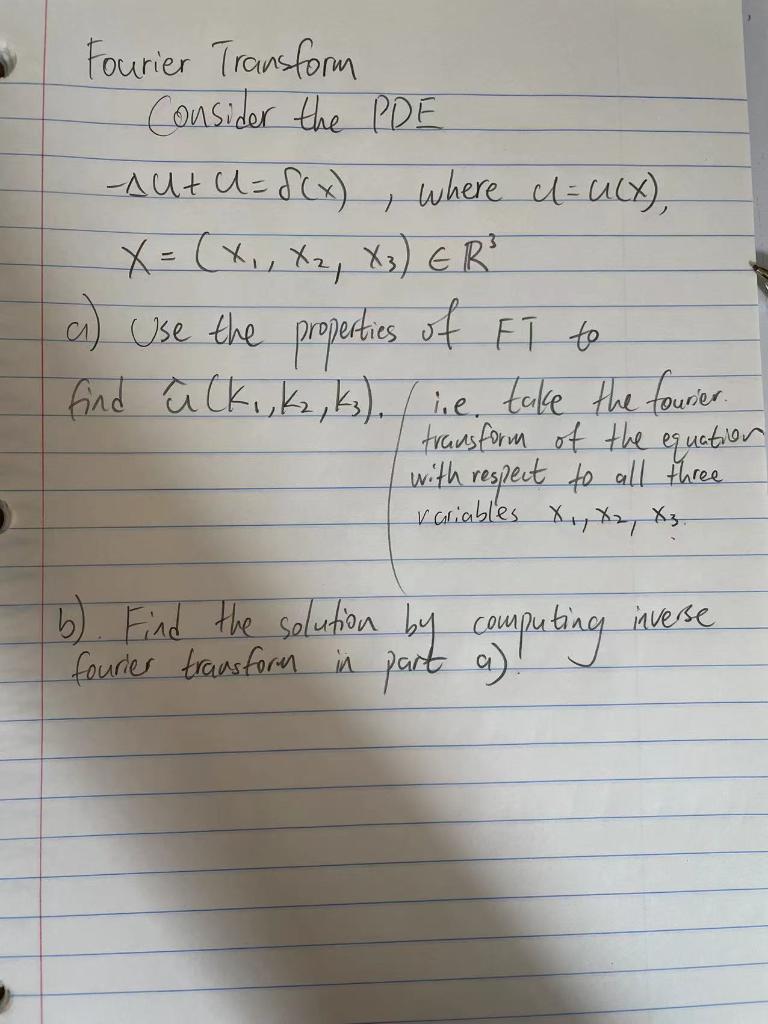 Fourier Transform
Consider the PDE
-Δu + u = δ(x) , where u = u(x),
x = (x₁, x₂, x₃) ∈ ℝ³
a) Use the properties of FT to
find û(k₁, k₂, k₃). ( i.e. take the fourier
transform of the equation
with respect to all three
variables x₁, x₂, x₃.
b). Find the solution by computing inverse
fourier transform in part a).